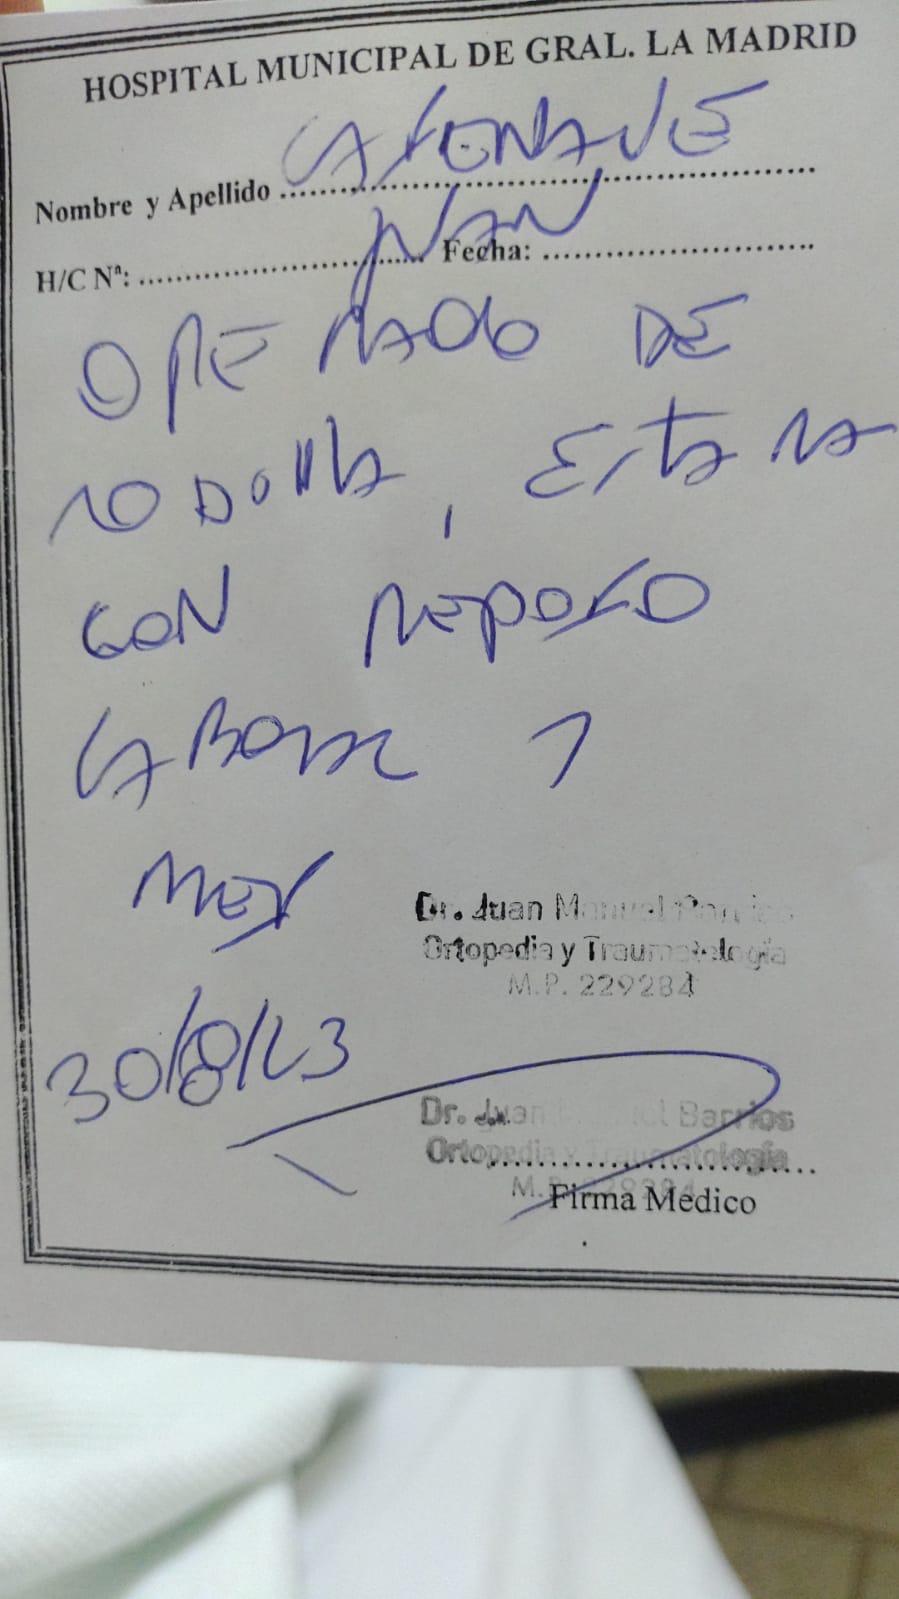 HOSPITAL MUNICIPAL DE GRAL. LA MADRID
Nombre y Apellido
JUAN
H/C Nª: Fecha:
OPERADO DE
RODILLA, ESTARA
CON REPOSO
LABORAL 1
MES
Dr. Juan Manuel
Ortopedia y Traumatología
M.P. 229284
30/8/23
Dr. Juan Manuel Barrios
Ortopedia y Traumatología
M.P.
Firma Medico